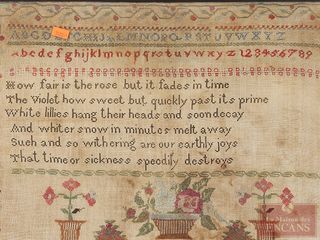 ABCDEFGHIJKLMNOPQRSTUVWXYZ
abcdefghijklmnopqrstuvwxyz 123456789
How fair is the rose but it fades in time
The Violet how sweet but quickly past its prime
White lillies hang their heads and soon decay
And whiter snow in minutes melt away
Such and so withering are our earthly joys
That time or sickness speedily destroys
La Maison des
ENCANS